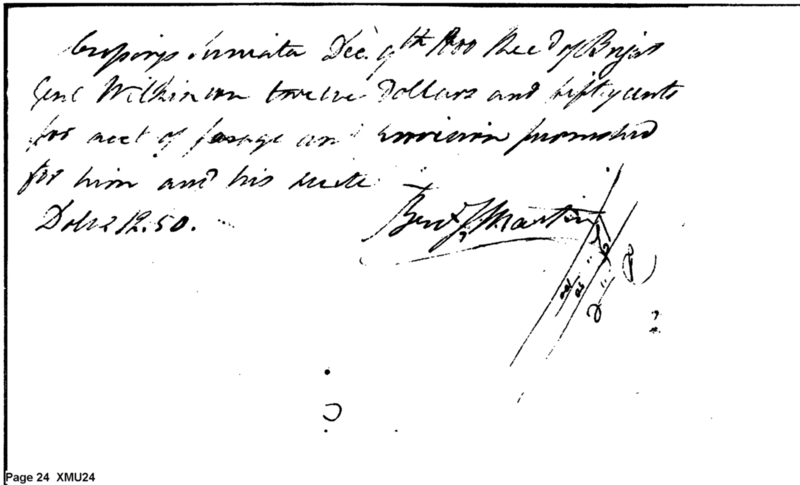 Crossings Juniata Dec. 9th 1800 Rec.d of Brig.r
Genl Wilkinson twelve Dollars and fifty cents
for acct of forage and provision furnished
for him and his suite
Dolrs 12.50.
Benj.n Martin
Page 24 XMU24